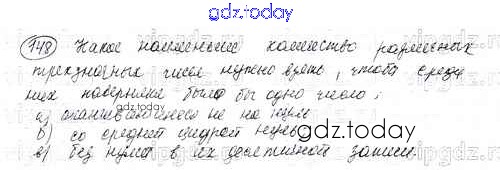 gdz.today
148 Какое наименьшее количество различных
трехзначных чисел нужно взять, чтобы среди
них наверняка было бы одно число:
gdz.today
а) оканчивающееся не на
б) со средней цифрой
gdz.today
в) без нулей в их десятичной записи